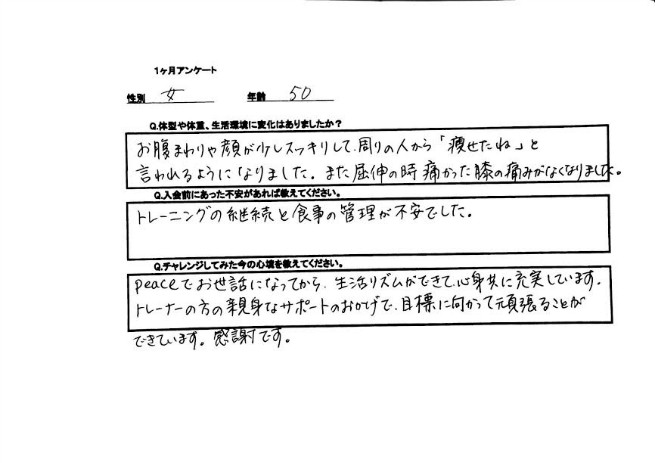 1ヶ月アンケート
性別 女 年齢 50
Q.体型や体重、生活環境に変化はありましたか？
お腹まわりや顔が少しスッキリして、周りの人から「痩せたね」と
言われるようになりました。また屈伸の時痛かった膝の痛みがなくなりました。
Q.入会前にあった不安があれば教えてください。
トレーニングの継続と食事の管理が不安でした。
Q.チャレンジしてみた今の心境を教えてください。
peaceでお世話になってから、生活リズムができて、心身共に充実しています。
トレーナーの方の親身なサポートのおかげで、目標に向かって頑張ることが
できています。感謝です。